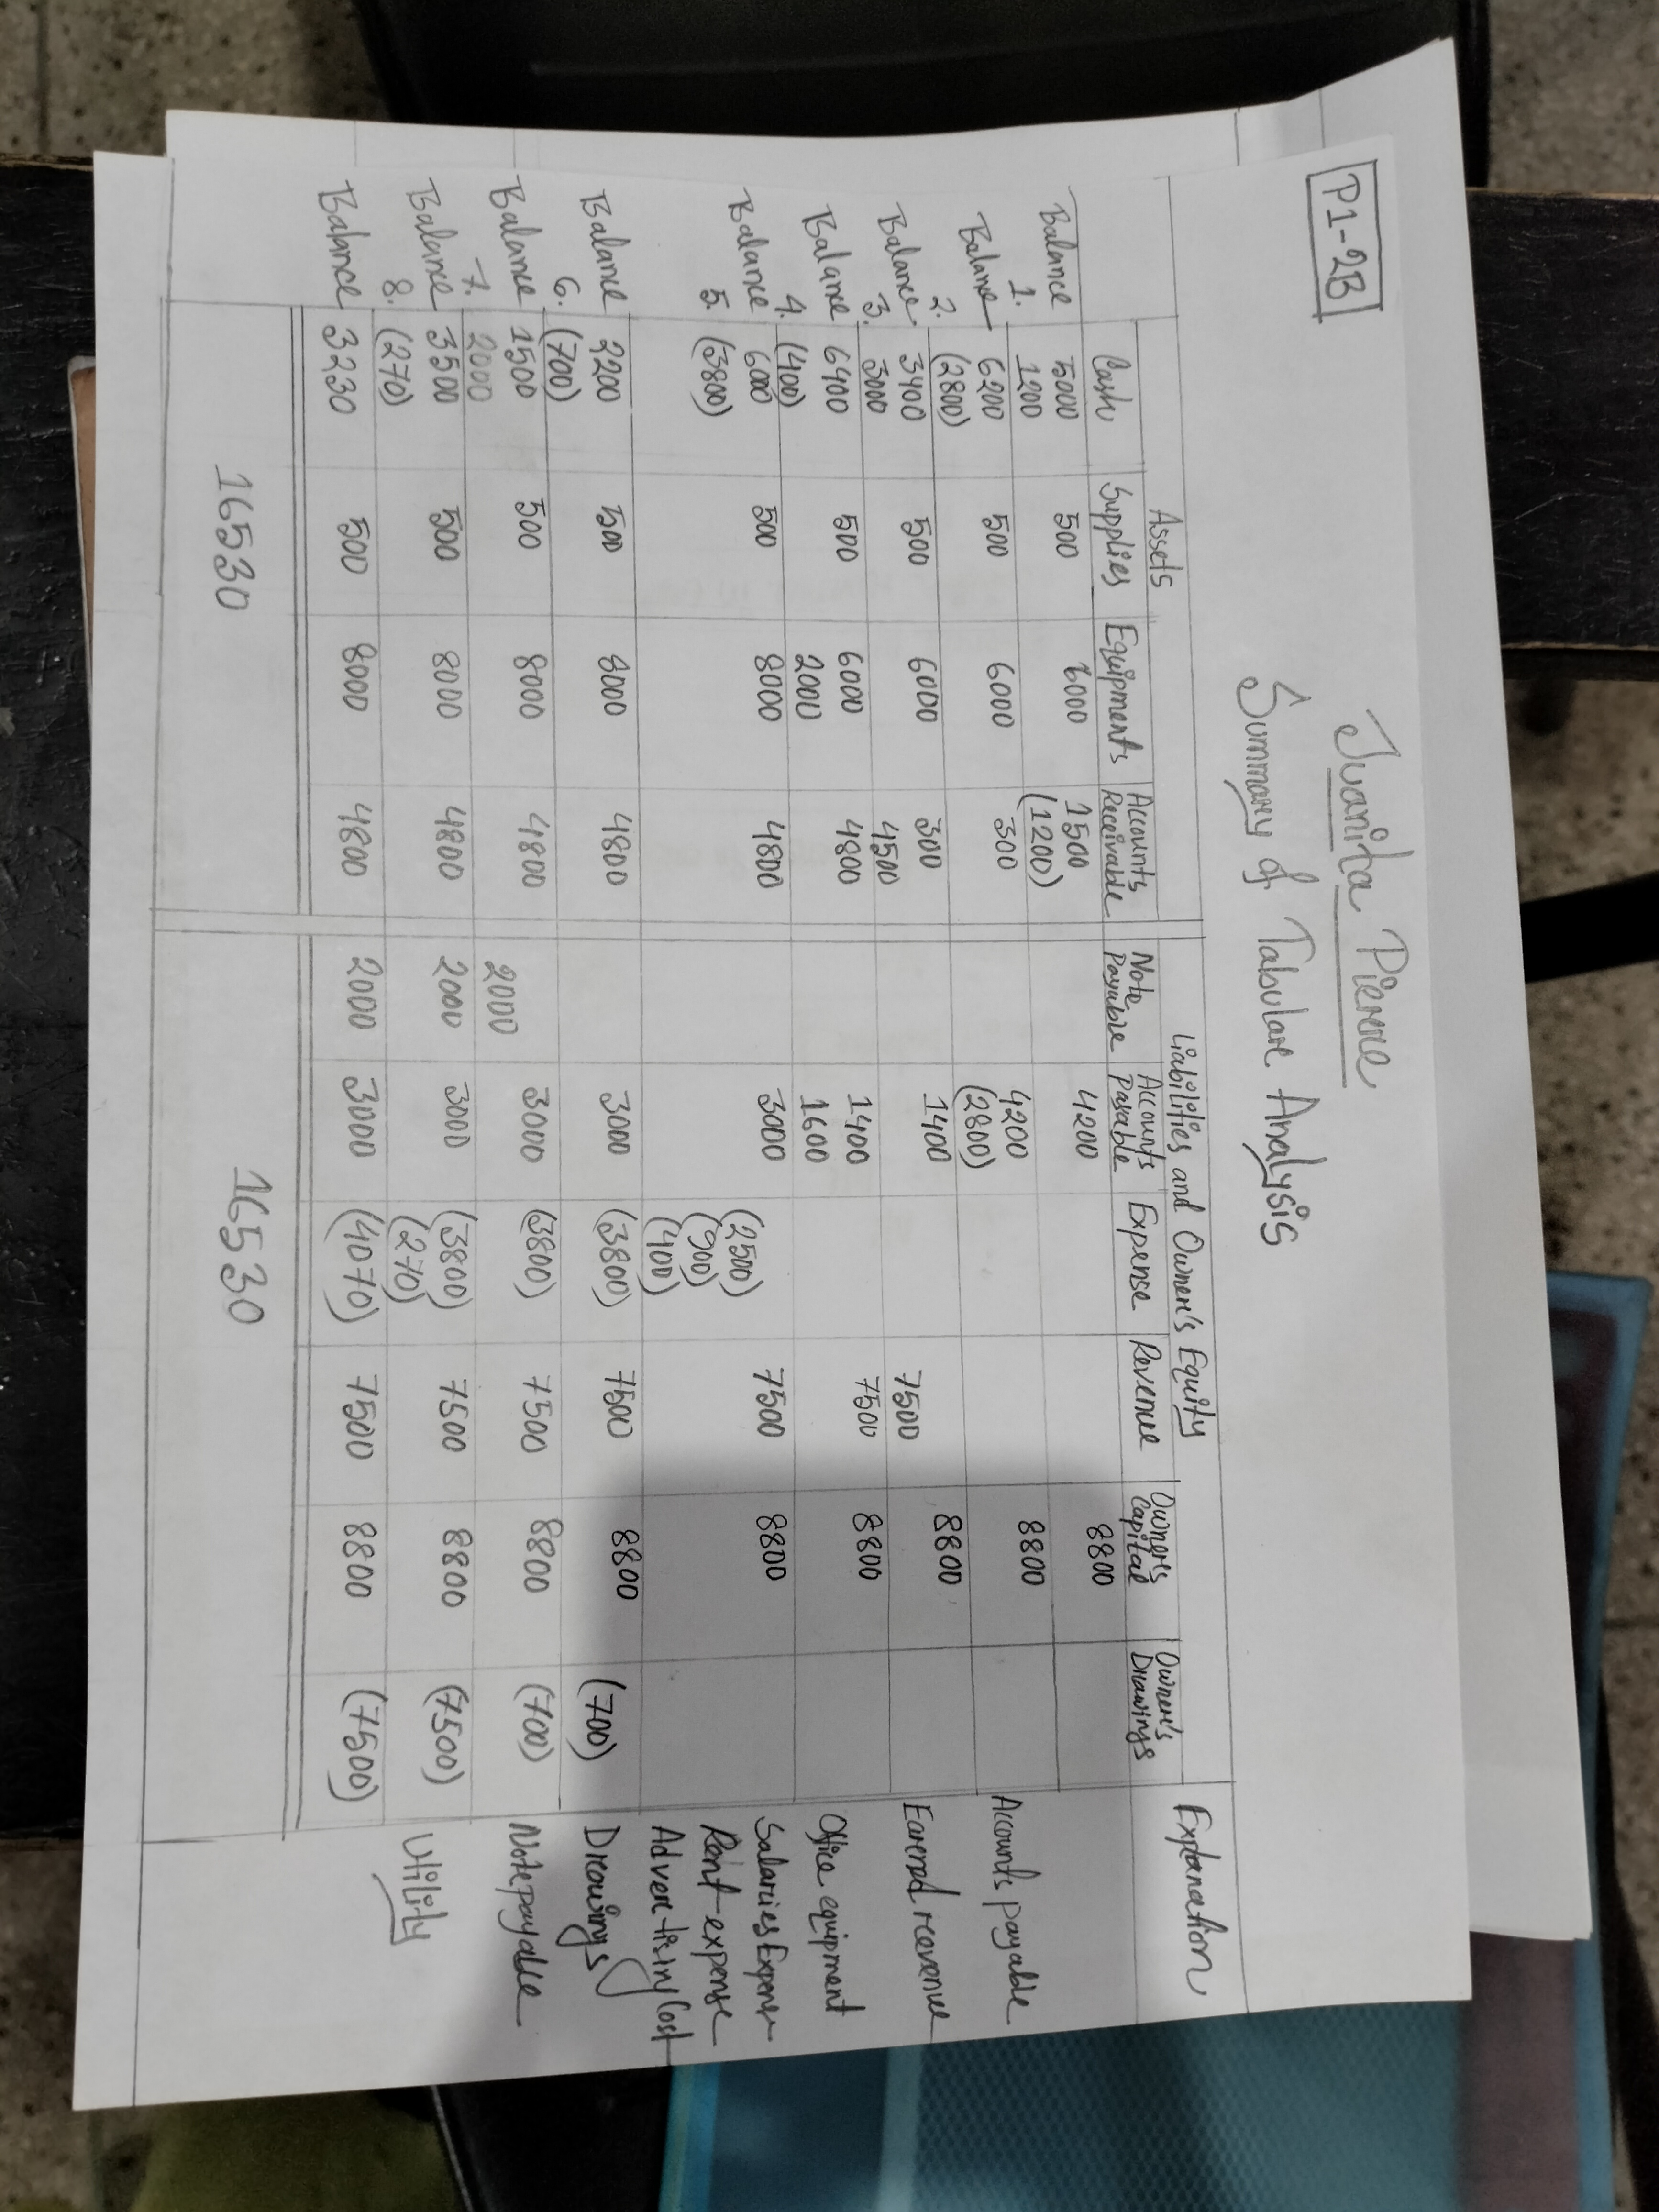 P1-2B
Juanita Pierre
Summary of Tabular Analysis
Assets Liabilities and Owner's Equity Explanation
Cash Supplies Equipments Accounts Receivable Note Payable Accounts Payable Expense Revenue Owner's Capital Owner's Drawings
Balance 5000 500 6000 1500 4200 8800
1. 1200 (1200)
Balance 6200 500 6000 300 4200 8800 Accounts payable
2. (2800) (2800)
Balance 3400 500 6000 300 1400 8800 Earned revenue
3. 3000 4500 7500
Balance 6400 500 6000 4800 1400 7500 8800 Office equipment
4. (400) 2000 1600
Balance 6000 500 8000 4800 3000 7500 8800 Salaries Expense
5. (3800) (2500)
(900) Rent expense
(400) Advertising Cost
Balance 2200 500 8000 4800 3000 (3800) 7500 8800 Drawings
6. (700) (700)
Balance 1500 500 8000 4800 3000 (3800) 7500 8800 (700) Note payable
7. 2000 2000
Balance 3500 500 8000 4800 2000 3000 (3800) 7500 8800 (7500) Utility
8. (270) (270)
Balance 3230 500 8000 4800 2000 3000 (4070) 7500 8800 (7500)
16530 16530